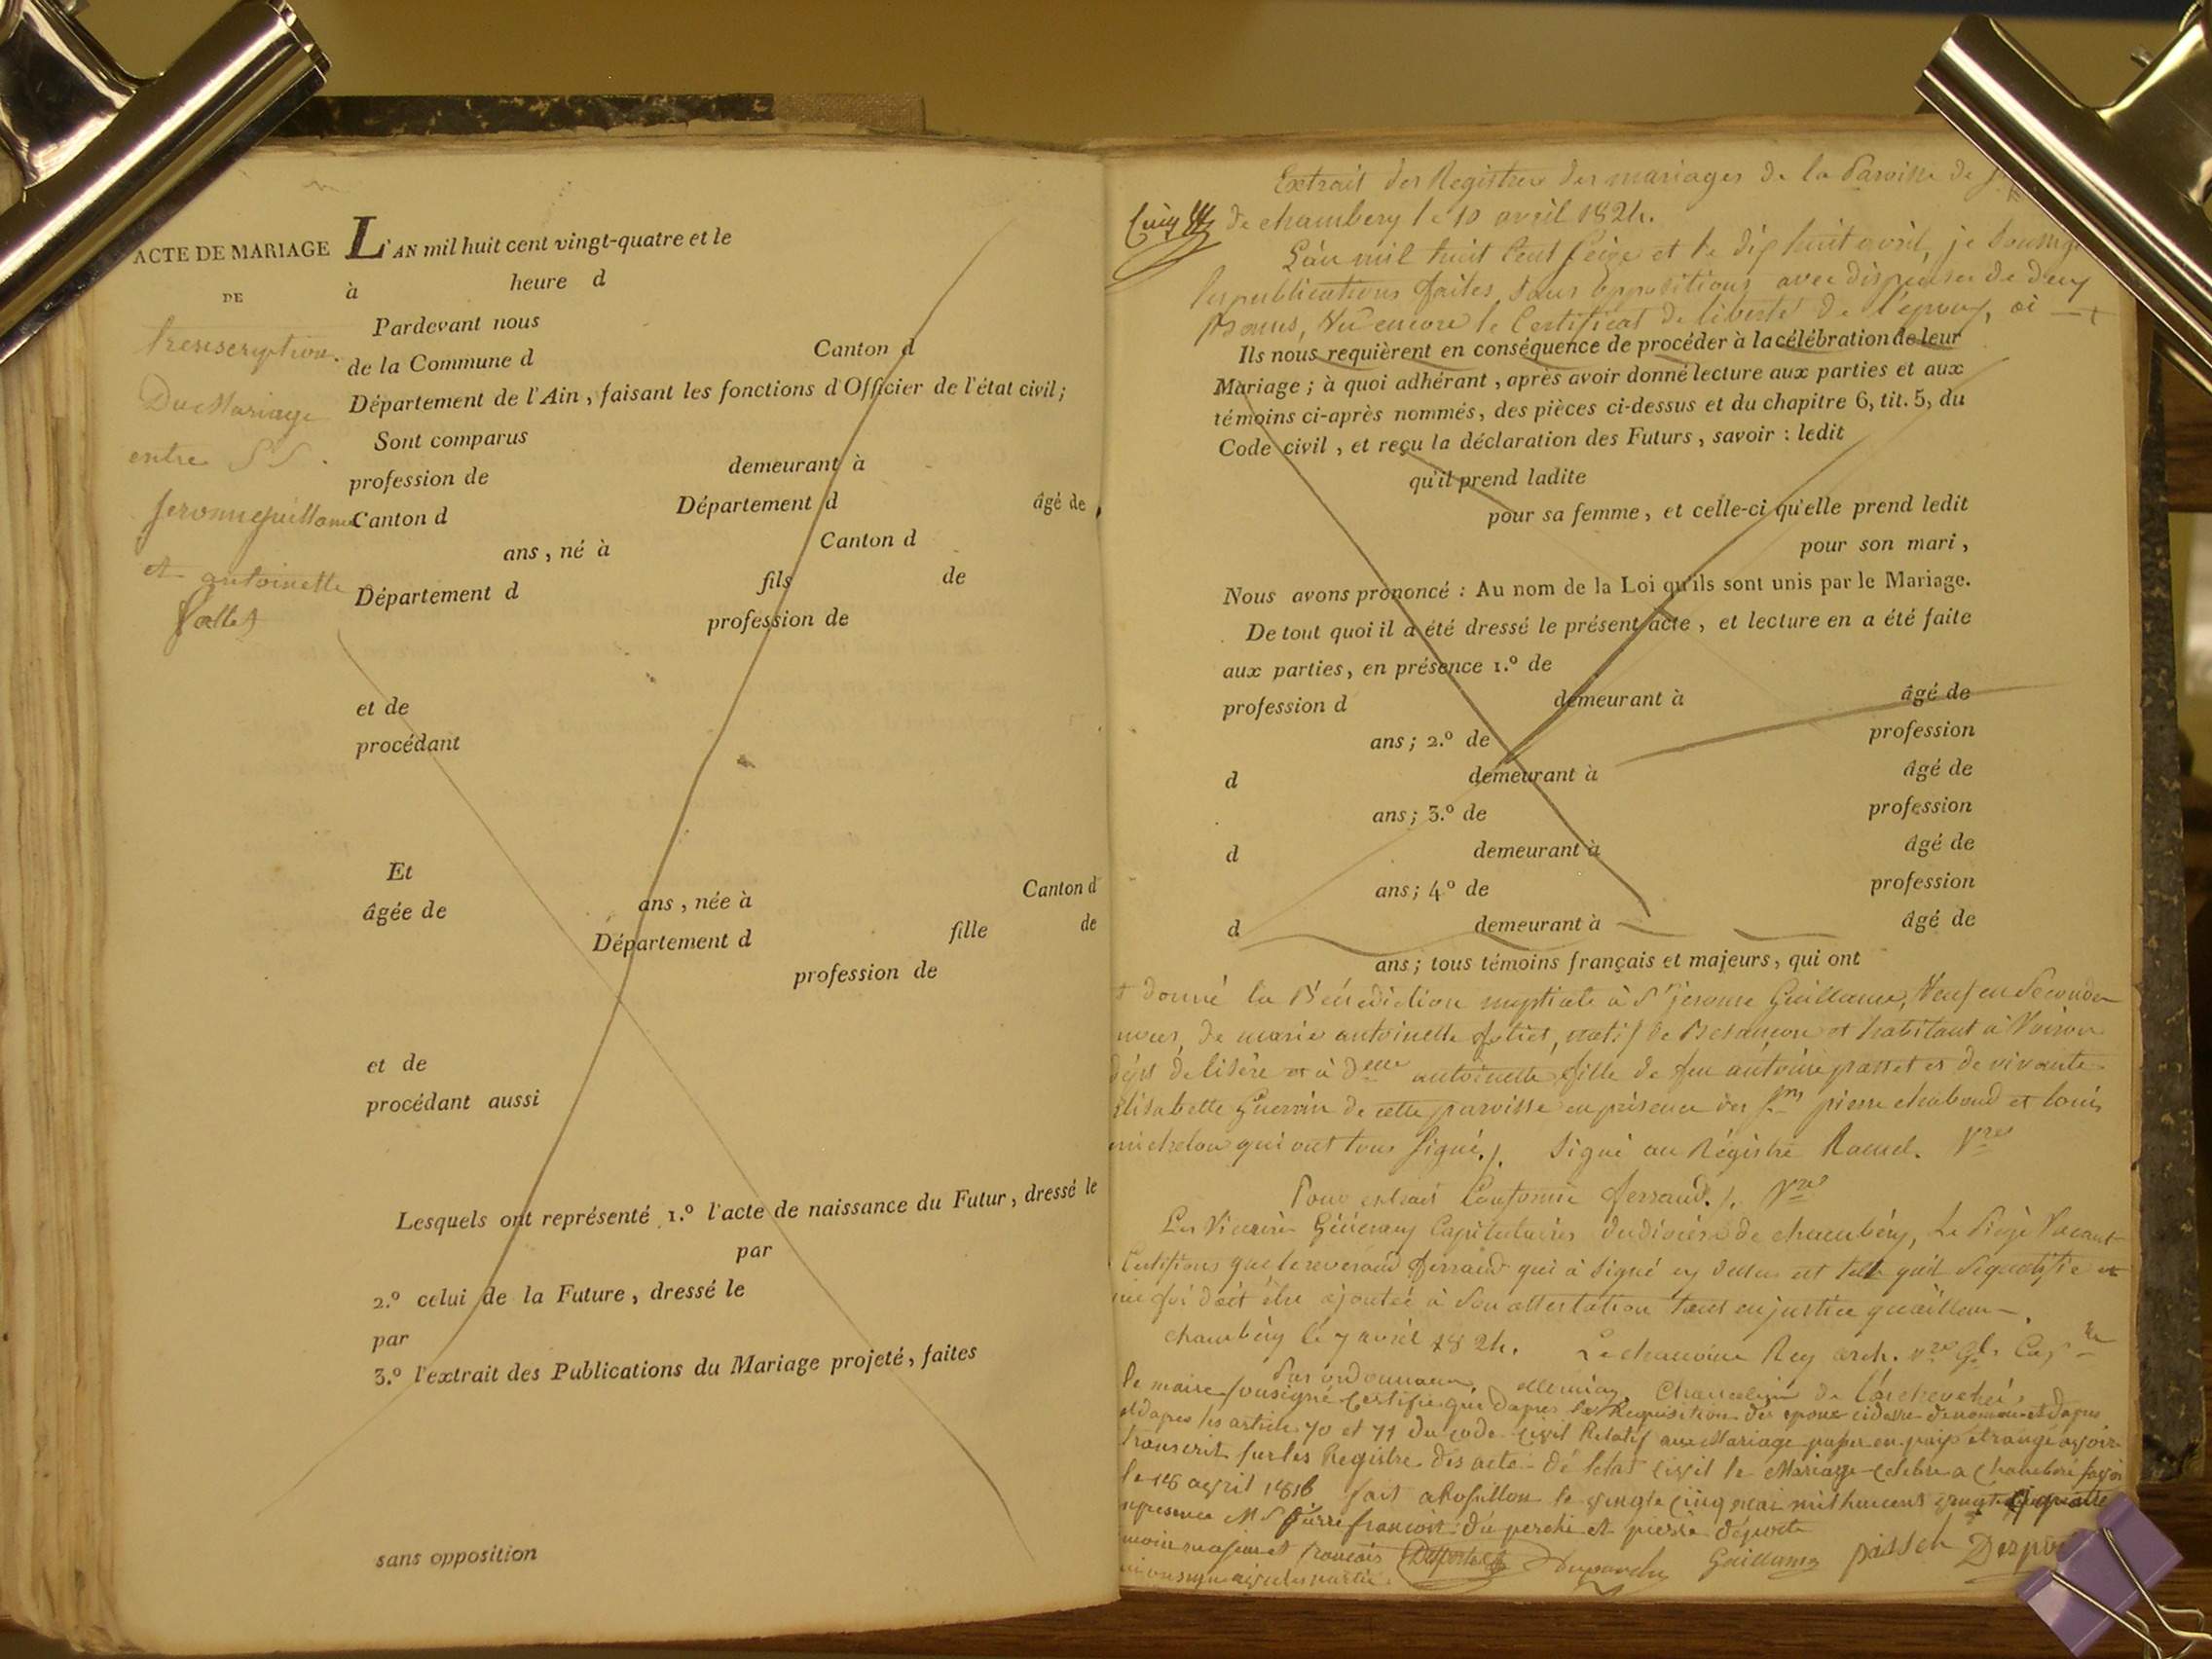 ACTE DE MARIAGE
DE
transcription
Du Mariage
entre S S
Jerome guillaume
et antoinette
L'AN mil huit cent vingt-quatre et le
à heure d
Pardevant nous
de la Commune d Canton d
Département de l'Ain, faisant les fonctions d'Officier de l'état civil;
Sont comparus
profession de demeurant à
Canton d Département d âgé de
ans, né à Canton d
Département d fils de
profession de
et de
procédant
Et
âgée de ans, née à Canton d
Département d fille de
profession de
et de
procédant aussi
Lesquels ont représenté 1.º l'acte de naissance du Futur, dressé le
par
2.º celui de la Future, dressé le
par
3.º l'extrait des Publications du Mariage projeté, faites
sans opposition
Extrait des Registres des mariages de la Paroisse de
de chambery le 10 avril 1824.
L'an mil huit cent seize et le dix huit avril, je soussigné
les publications faites, sans oppositions avec dispenses de deux
Vu encore le Certificat de liberté de l'epoux, ai
Ils nous requièrent en conséquence de procéder à la célébration de leur
Mariage; à quoi adhérant, après avoir donné lecture aux parties et aux
témoins ci-après nommés, des pièces ci-dessus et du chapitre 6, tit. 5, du
Code civil, et reçu la déclaration des Futurs, savoir: ledit
qu'il prend ladite
pour sa femme, et celle-ci qu'elle prend ledit
pour son mari,
Nous avons prononcé: Au nom de la Loi qu'ils sont unis par le Mariage.
De tout quoi il a été dressé le présent acte, et lecture en a été faite
aux parties, en présence 1.º de
profession d demeurant à âgé de
ans; 2.º de profession
d demeurant à âgé de
ans; 3.º de profession
d demeurant à âgé de
ans; 4º de profession
d demeurant à âgé de
ans; tous témoins français et majeurs, qui ont
donné la Bénédiction nuptiale à Sr jerome Guillaume, Veuf en secondes
noces, de marie antoinette natif de Besançon et habitant à Voiron
dépt de lisère et à Delle antoinette fille de feu antoine passet et de vivante
Elisabette Guerrin de cette paroisse en présence des Srs pierre chaboud et louis
michelon qui ont tous signé./. Signé au Régistre
Pour extrait Conforme ferraud./.
Les Vicaires Généraux Capitulaires du diocèse de chambéry, Le Siège Vacant
Certifions que le reverend ferraud qui à signé cy dessus est tel qu'il se qualifie et
que foi doit être ajoutée à son attestation tant en justice qu'ailleurs
chambéry le 7 avril 1824. Le chanoine Rey arch.
Par ordonnance, Chancelier de l'archeveché
le maire sousigné Certifie que d'apres la Requisition des epoux cidessus denommes et d'apres
et d'apres les article 70 et 71 du code civil Relatif aux Mariage passer en païs étrangé avoir
transcrit sur les Registre des acte de letat civil le Mariage Celebre a Chambéri
le 18 avril 1816 fait a le vingt Cinq mai mil huit cent vingt quatre
en presence M S Pierre francois et pierre
temoins majeur et francois Guillaume passet